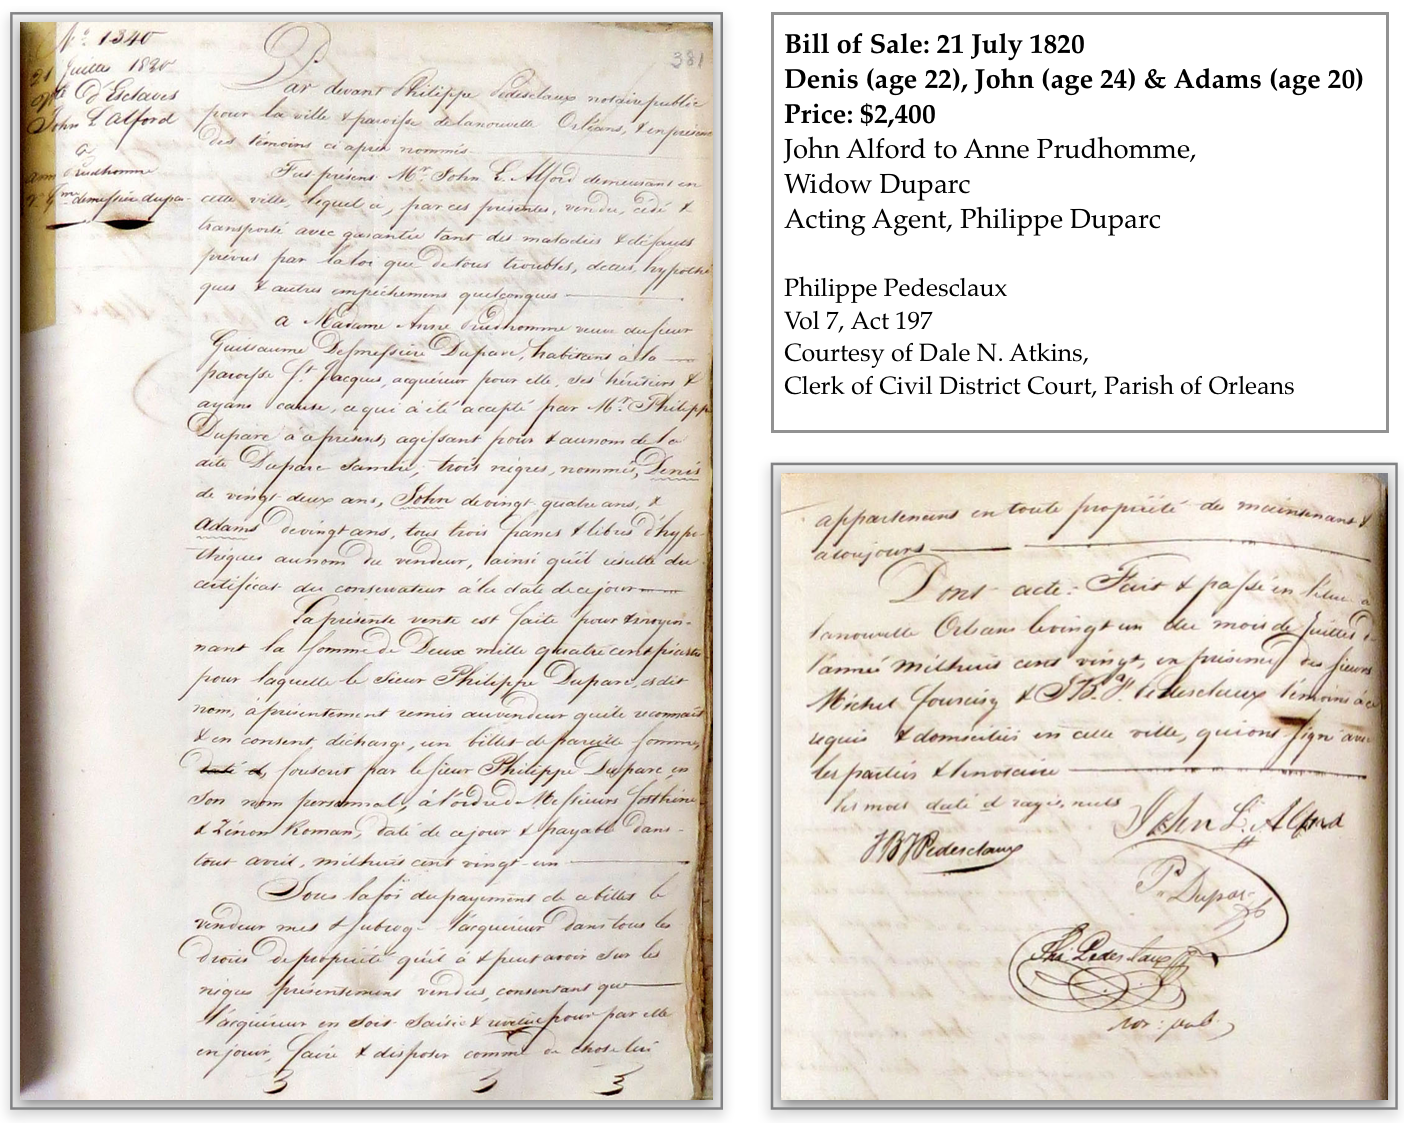 N.º 1340
21 Juillet 1820
Vte d'Esclaves
John L Alford
a
ann Prudhomme
Vve Gme demessiere dupar-
381
Par devant Philippe Pedesclaux notaire public
pour la ville & paroisse de la nouvelle Orléans, & en présence
des témoins ci après nommés
Fut présent Mr. John L. Alford demeurant en
cette ville, lequel a, par ces présentes, vendu, cédé &
transporté avec garantie tant des maladies & défauts
prévus par la loi que de tous troubles, dettes, hypothè
ques & autres empéchemens quelconques
a Madame Anne Prudhomme veuve du feu
Guillaume Demessiere Duparc, habitante à la
paroisse St. Jacques, acquéreur pour elle, ses héritiers &
ayans cause, ce qui a été accepté par Mr. Philippe
Duparc à ce présent, agissant pour & au nom de la
dite Duparc sa mère, trois nègres, nommés, Denis
de vingt deux ans, John de vingt quatre ans, &
Adams de vingt ans, tous trois francs & libres d'hypo-
thèques au nom du vendeur, ainsi qu'il résulte du
certificat du conservateur à la date de ce jour
La présente vente est faite pour & moyen-
nant la somme de Deux mille quatre cent piastres
pour laquelle le Sieur Philippe Duparc, es dit
nom, a présentement remis au vendeur qui le reconnait
& en consent décharge, un billet de pareille somme,
daté d, souscrit par le sieur Philippe Duparc en
son nom personnal, à l'ordre de Messieurs Josthène
& Zénon Roman, daté de ce jour & payable dans-
tout avril, mil huit cent vingt-un
Sous la foi du payement de ce billet le
vendeur met & subroge l'acquéreur dans tous les
droits de propriété qu'il a & peut avoir sur les
nègres présentement vendus, consentant que
l'acquéreur en soit saisie & revêtue pour par elle
en jouir, faire & disposer comme de chose lui
Bill of Sale: 21 July 1820
Denis (age 22), John (age 24) & Adams (age 20)
Price: $2,400
John Alford to Anne Prudhomme,
Widow Duparc
Acting Agent, Philippe Duparc
Philippe Pedesclaux
Vol 7, Act 197
Courtesy of Dale N. Atkins,
Clerk of Civil District Court, Parish of Orleans
appartenant en toute propriété dès maintenant &
à toujours
Dont acte: Fait & passé en l'étude à
la nouvelle Orléans le vingt un du mois de Juillet de
l'année mil huit cent vingt, en présence des sieurs
Michel Fourcisy & J.B. F. Pedesclaux témoins à ce
requis & domiciliés en cette ville, qui ont signé avec
les parties & le notaire
les mots daté d rayés, nuls
John L. Alford
JBF Pedesclaux
P. Duparc
Phi. Pedesclaux
not: pub.